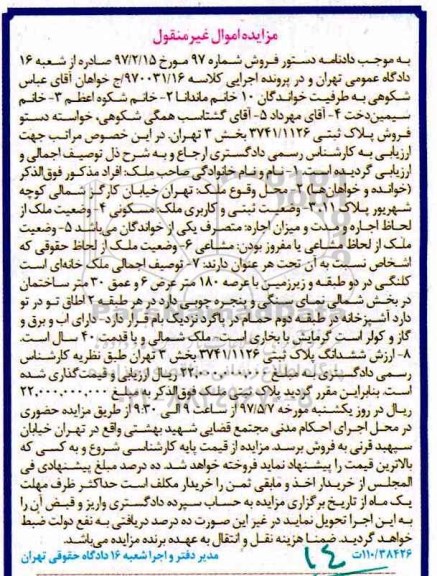 مزایده اموال غیر منقول
به موجب دادنامه دستور فروش شماره ۹۷ مورخ ۹۷/۲/۱۵ صادره از شعبه ۱۶
دادگاه عمومی تهران و در پرونده اجرایی کلاسه ۹۷۰۰۳۱/۱۶/ج خواهان آقای عباس
شکوهی به طرفیت خواندگان ۱- خانم ماندانا ۲- خانم شکوه اعظم ۳- خانم
سیمین‌دخت ۴- آقای مهرداد ۵- آقای گشتاسب همگی شکوهی، خواسته دستور
فروش پلاک ثبتی ۳۷۴۱/۱۱۲۶ بخش ۳ تهران. در این خصوص مراتب جهت
ارزیابی به کارشناس رسمی دادگستری ارجاع و به شرح ذل توصیف اجمالی و
ارزیابی گردیده است: ۱- نام و نام خانوادگی صاحب ملک: افراد مذکور فوق‌الذکر
(خوانده و خواهان‌ها) ۲- محل وقوع ملک: تهران خیابان کارگر شمالی کوچه
شهریور پلاک ۱۱ ۳- وضعیت ثبتی و کاربری ملک: مسکونی ۴- وضعیت ملک از
لحاظ اجاره و مدت و میزان اجاره: متصرف یکی از خواندگان می‌باشد ۵- وضعیت
ملک از لحاظ مشاعی یا مفروز بودن: مشاعی ۶- وضعیت ملک از لحاظ حقوقی که
اشخاص نسبت به آن تحت هر عنوان دارند: ۷- توصیف اجمالی ملک خانه‌ای است
کلنگی در دو طبقه و زیرزمین با عرصه ۱۸۰ متر عرض ۶ و عمق ۳۰ متر ساختمان
در بخش شمالی نمای سنگی و پنجره چوبی دارد در هر طبقه ۲ اطاق تو در تو
دارد آشپزخانه در طبقه دوم حمام در پاگرد نزدیک بام قرار دارد- دارای آب و برق و
گاز و کولر است گرمایش با بخاری است. ملک شمالی و با قدمت ۴۰ سال است.
۸- ارزش ششدانگ پلاک ثبتی ۳۷۴۱/۱۱۲۶ بخش ۳ تهران طبق نظریه کارشناس
رسمی دادگستری به مبلغ ۲۲,۰۰۰,۰۰۰,۰۰۰ ریال ارزیابی و قیمت‌گذاری شده
است. بنابراین مقرر گردید پلاک ثبتی ملک فوق‌الذکر به مبلغ ۲۲,۰۰۰,۰۰۰,۰۰۰
ریال در روز یکشنبه مورخه ۹۷/۵/۷ از ساعت ۹ الی ۹:۳۰ از طریق مزایده حضوری
در محل اجرای احکام مدنی مجتمع قضایی شهید بهشتی واقع در تهران خیابان
سپهبد قرنی به فروش برسد. مزایده از قیمت پایه کارشناسی شروع و به کسی که
بالاترین قیمت را پیشنهاد نماید فروخته خواهد شد. ده درصد مبلغ پیشنهادی فی
المجلس از خریدار اخذ و مابقی ثمن را خریدار مکلف است حداکثر ظرف مهلت
یک ماه از تاریخ برگزاری مزایده به حساب سپرده دادگستری واریز و قبض آن را
به این اجرا تحویل نماید در غیر این صورت ده درصد دریافتی به نفع دولت ضبط
خواهد گردید. ضمنا هزینه نقل و انتقال به عهده برنده مزایده می‌باشد.
۱۱۰/۳۸۴۲۶ت
مدیر دفتر و اجرا شعبه ۱۶ دادگاه حقوقی تهران